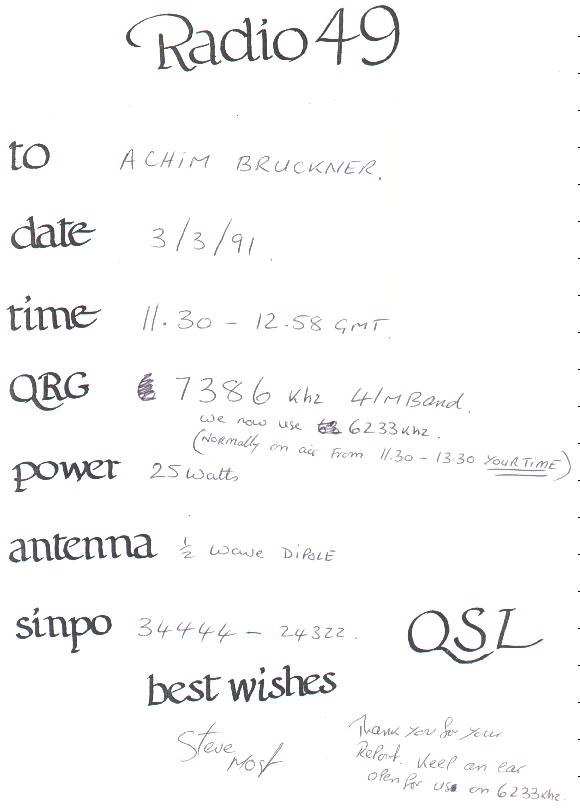 Radio 49
to ACHiM BRUCKNER.
date 3/3/91.
time 11.30 - 12.58 GMT.
QRG 7386 Khz 41MBand.
we now use 6233Khz.
(Normally on air From 11.30 - 13.30 YOUR TIME)
power 25 Watts
antenna ½ wave DiPOLE
sinpo 34444 - 24322.
QSL
best wishes
Steve
Most
Thank you for your
Report. Keep an ear
open for us on 6233Khz.